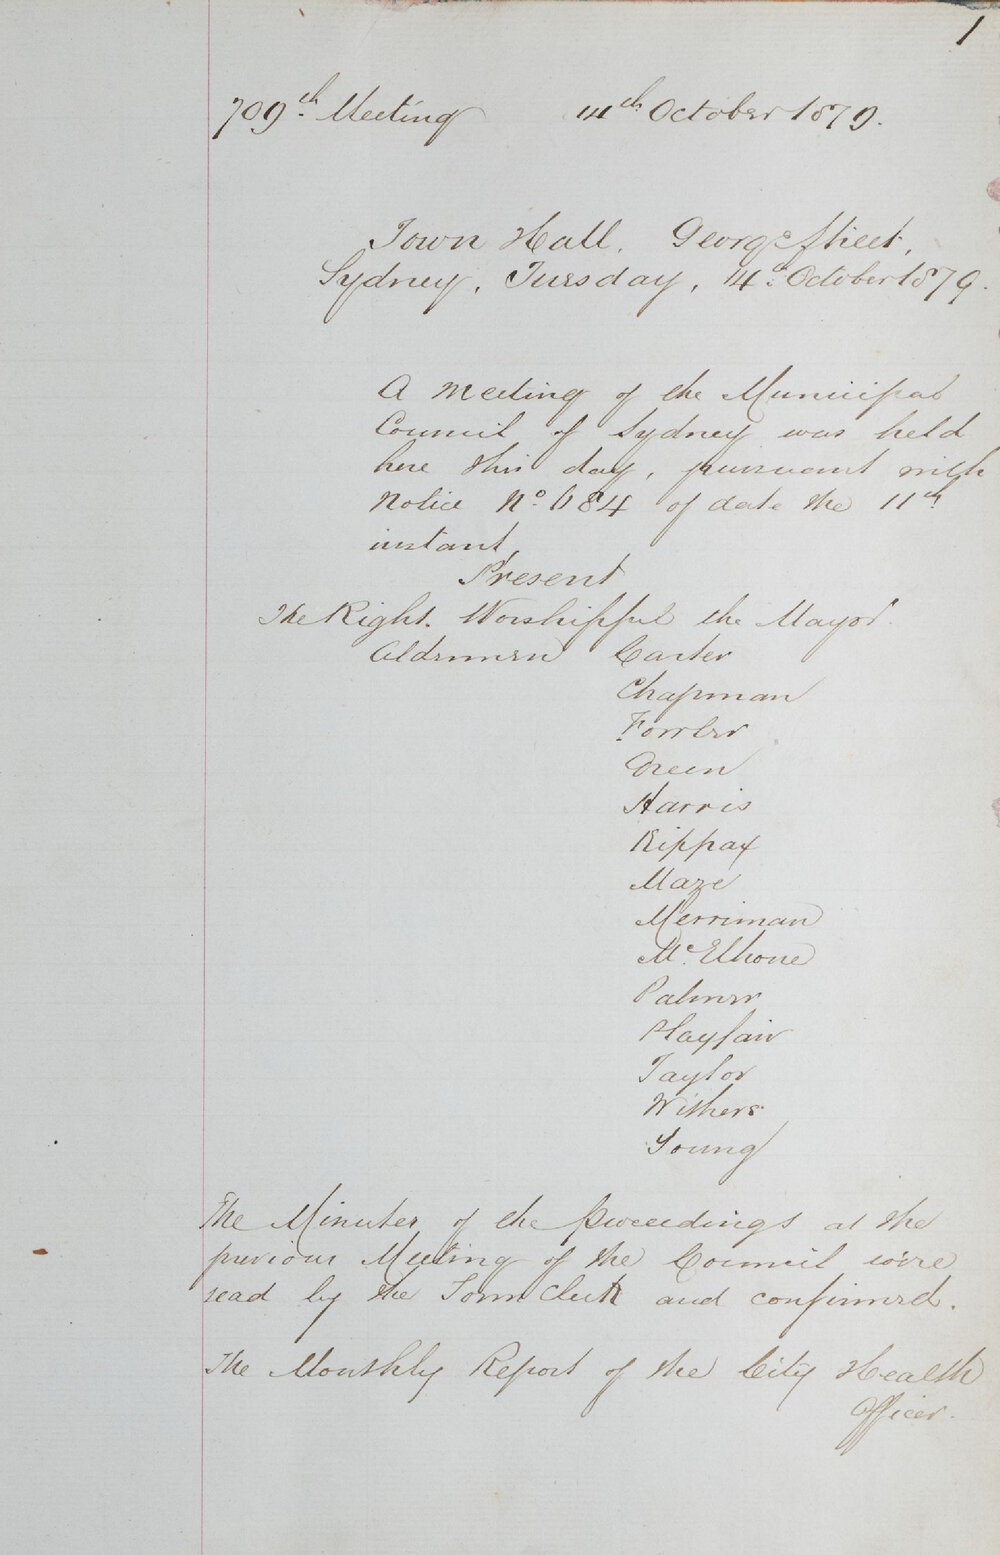 1
709th Meeting 14th October 1879.
Town Hall. George Street,
Sydney, Tuesday, 14th October 1879.
A meeting of the Municipal
Council of Sydney was held
here this day, pursuant with
Notice No. 684 of date the 11th
instant,
Present
The Right Worshipful the Mayor.
Aldermen Carter
Chapman
Fowler
Green
Harris
Kippax
Maze
Merriman
McElhone
Palmer
Playfair
Taylor
Withers
Young
The Minutes of the Proceedings at the
previous Meeting of the Council were
read by the Town Clerk and confirmed.
The Monthly Report of the City Health
Officer.